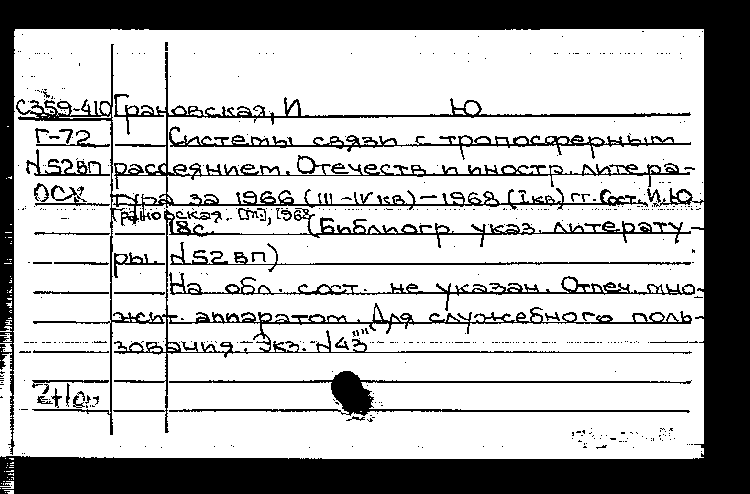 С359-410 Грановская, И Ю
Г-72 Системы связи с тропосферным
N52вп рассеянием. Отечеств и иностр. литера-
ОСХ тура за 1966 (III-IV кв) – 1968 (I кв) гг. Сост. И.Ю.
Грановская. [М], 1968
18с. (Библиогр. указ. литерату-
ры. N52 ВП)
На обл. сост. не указан. Отпеч. мно-
жит. аппаратом. Для служебного поль-
зования. Экз. N43